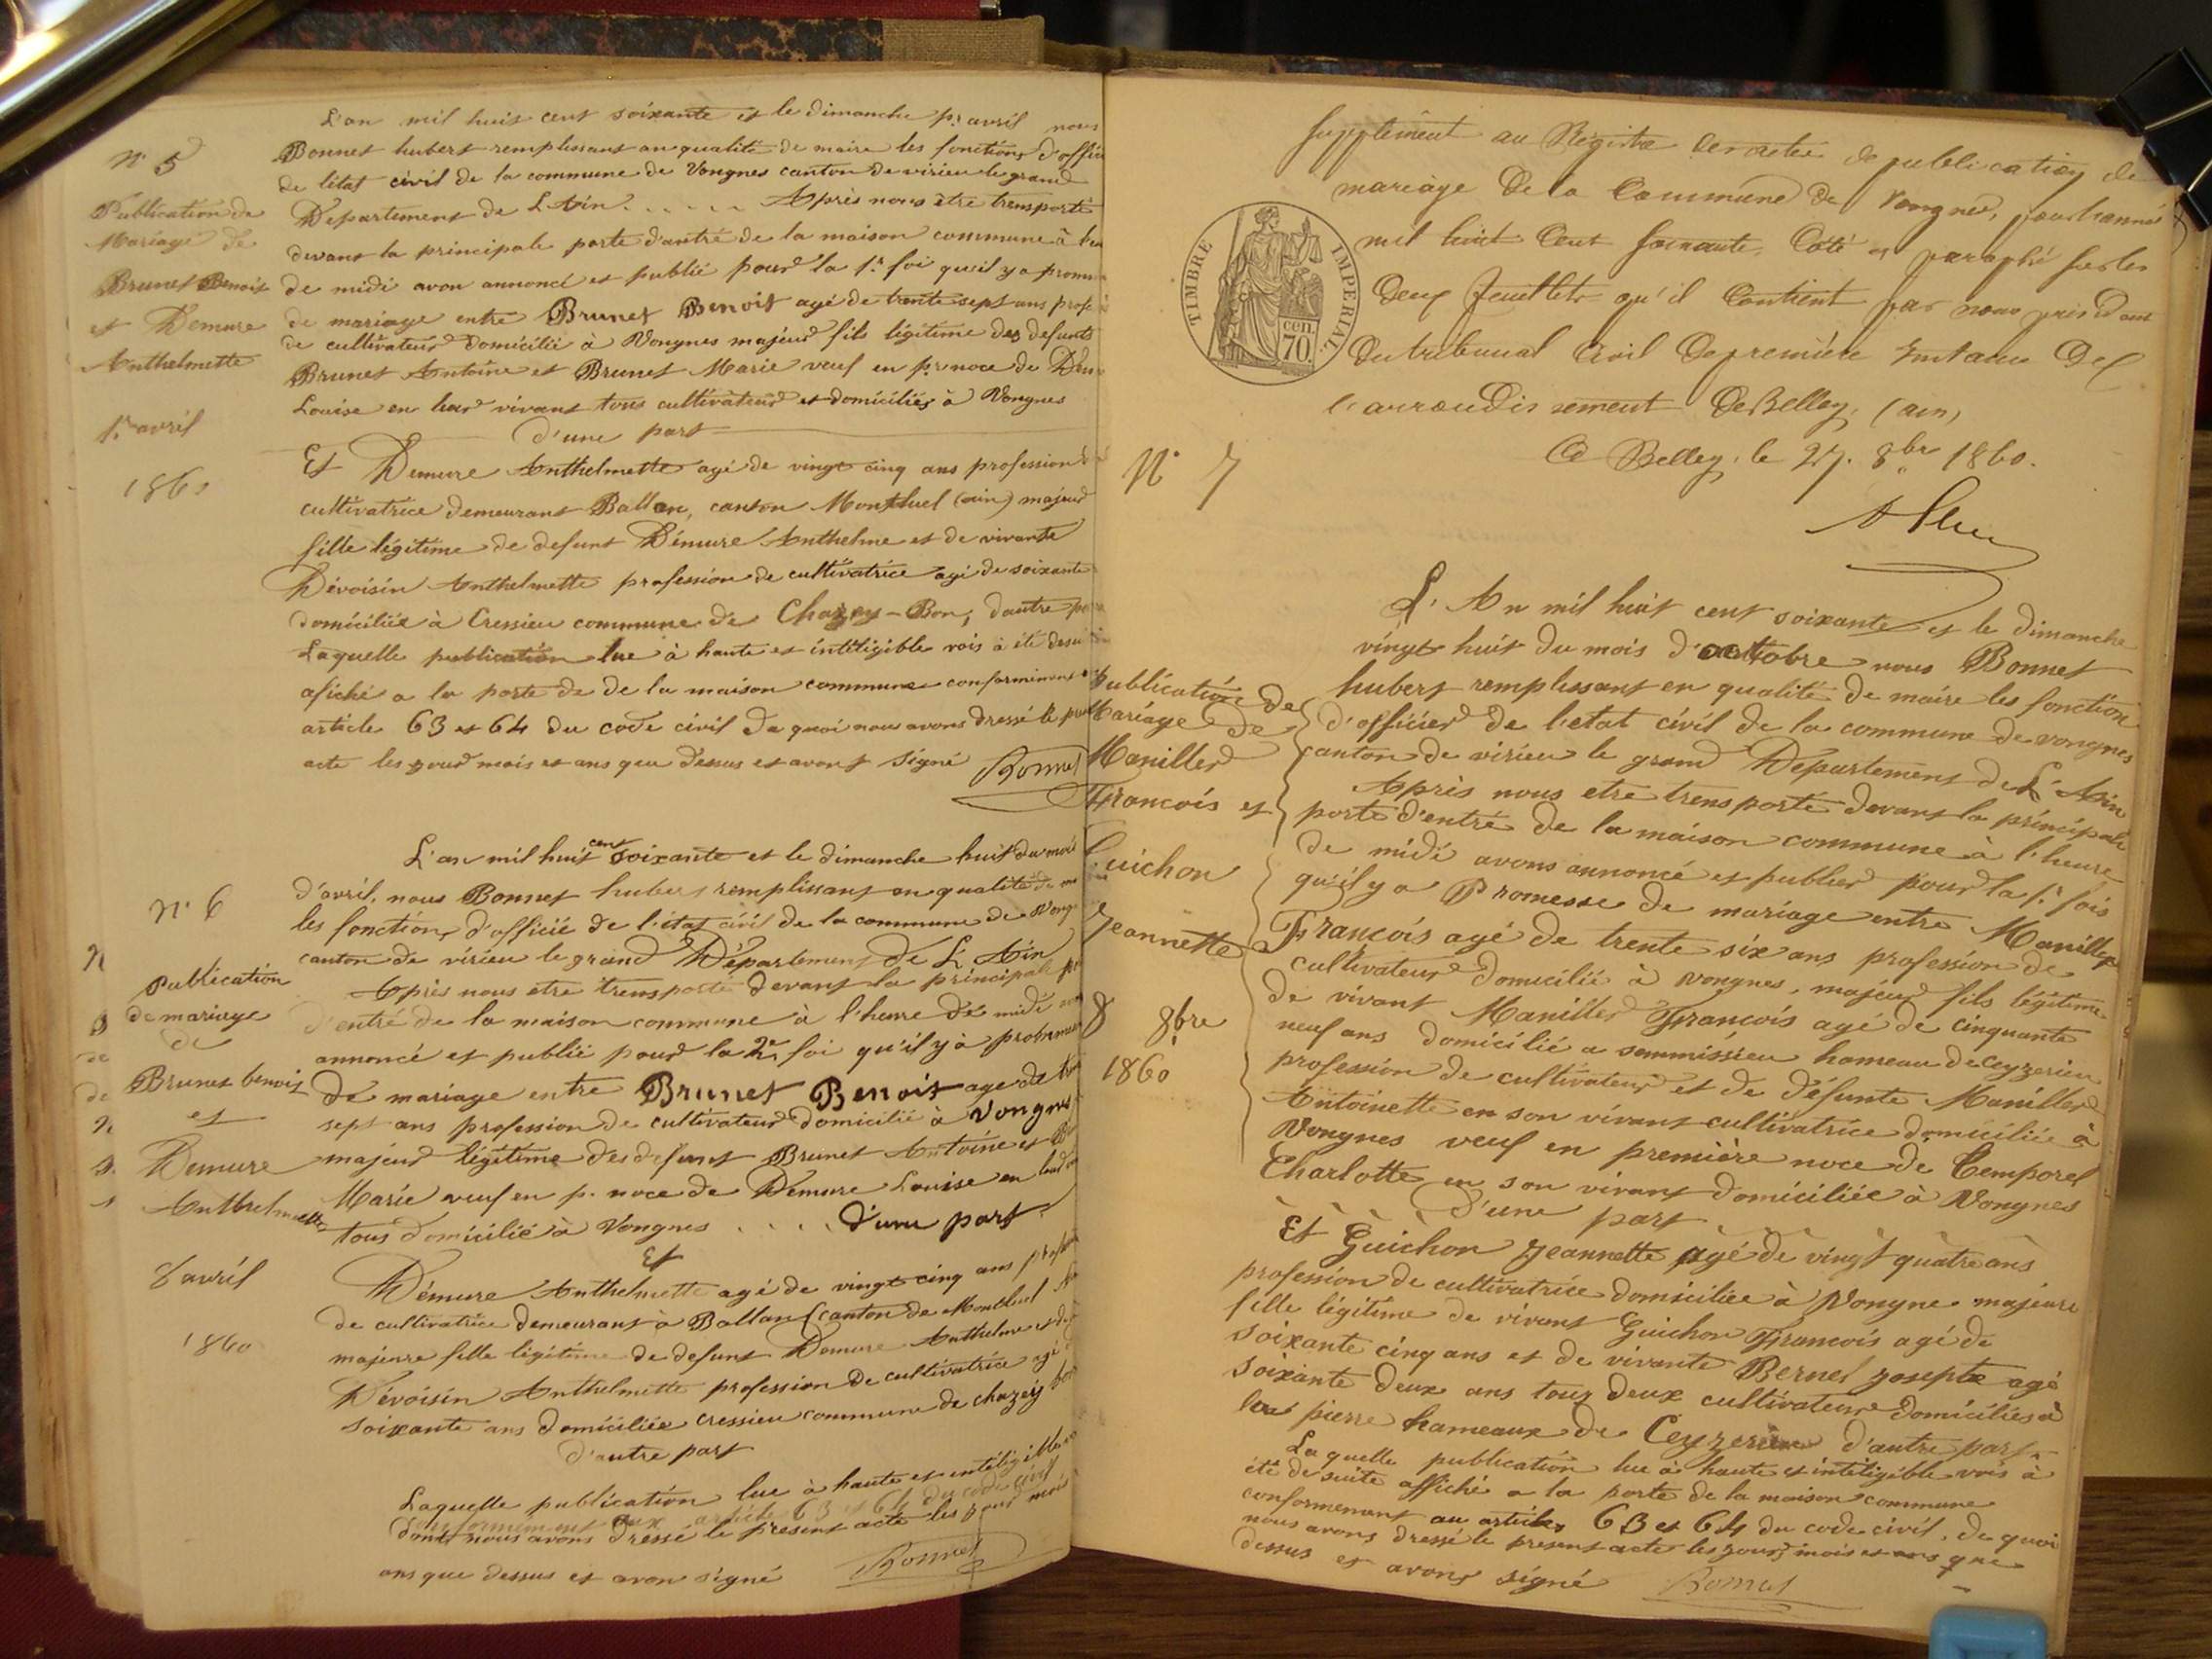 L'an mil huit cent soixante et le dimanche pr. avril nous
N° 5
Bonnet hubert remplissant en qualité de maire les fonctions d'offi
de l'état civil de la commune de Vongnes canton de virieu le grand
Publication de
Mariage de
Brunet Benoit
et Demure
Anthelmette
1er avril
1860
Departement de L'Ain. . . . . . Après nous être transporté
devant la principale porte d'antré de la maison commune à
de midi avon annoncé et publié pour la 1re foi qu'il y a prom
de mariage entre Brunet Benoit agé de trente sept ans profe
de cultivateur domicilié à Vongnes majeur fils légitime des defunts
Brunet Antoine et Brunet Marie veuf en pr. noce de
Louise en leur vivant tous cultivateur et domiciliés à Vongnes
d'une part
Et Demure Anthelmette agé de vingt cinq ans profession
cultivatrice demeurant Ballan, canton Montluel (ain) majeur
fille légitime de defunt Démure Anthelme et de vivante
Dévoisin Anthelmette profession de cultivatrice agé de soixante
domiciliée à Cressieu commune de Chazey-Bon, dautre
Laquelle publication lue à haute et intéligible vois à été desui
afiché a la porte de de la maison commune conforminent
article 63 et 64 du code civil de quoi nous avons dressé le
acte les jour mois et ans que dessus et avont signé Bonnet
L'an mil huit cent soixante et le dimanche huit du mois
N° 6
d'avril, nous Bonnet hubert remplissant en qualité de
les fonctions d'officié de l'état civil de la commune de Vong
canton de virieu le grand Département de L'Ain
Publication
de mariage
de
Brunet benoit
et
Demure
Anthelmette
8 avril
1860
Après nous etre transporté devant la principale
d'entré de la maison commune à l'heure de midi
annoncé et publié pour la 2e foi qu'il y à promme
de mariage entre Brunet Benoit age de
sept ans profession de cultivateur domicilié à Vongnes
majeur légitime des defunt Brunet Antoine et
Marie veuf en p. noce de Demure Louise en
tous domicilié à Vongnes . . . . d'une part
Et
Démure Anthelmette agé de vingt cinq ans
de cultivatrice demeurant à Ballan (canton de Montluel
majeure fille légitime de defunt Demure Anthelme et
Dévoisin Anthelmette profession de cultivatrice agé
soixante ans domiciliée cressieu commune de chazey bon
d'autre part
Laquelle publication lue à haute et intéligible
conformement aux article 63 et 64 du code civil
dont nous avons dressé le present acte les jour mois
ans que dessus et avon signé Bonnet
Supplément au Régistre des actes de publication de
mariage de la Commune de Vongnes, pour l'année
mil huit Cent soixante, Coté et paraphé sur les
deux feuillets qu'il Contient par nous président
du tribunal Civil de première instance de
l'arrondissement de Belley, (ain,
TIMBRE IMPERIAL
cen.
70.
A Belley, le 27. 8bre 1860.
N° 7
L'An mil huit cent soixante et le dimanche
vingt huit du mois d'octobre nous Bonnet
hubert remplissant en qualité de maire les fonction
d'officier de l'etat civil de la commune de vongnes
canton de virieu le grand Departement de L'Ain
Publication de
Mariage de
Maniller
François et
Guichon
Jeannette
8 8bre
1860
Après nous etre transporté devant la principale
porte d'entré de la maison commune à l'heure
de midi avons annoncé et publier pour la 1re fois
qu'il y a Promesse de mariage entre Maniller
François agé de trente six ans profession de
cultivateur domicilié à vongnes, majeur fils légitime
de vivant Maniller François agé de cinquante
neuf ans domicilié a sommissieu hameau de ceyzerieu
profession de cultivateur et de défunte Maniller
Antoinette en son vivant cultivatrice domiciliée à
Vongnes veuf en première noce de Temporel
Charlotte en son vivant domiciliée à Vongnes
d'une part
Et Guichon Jeannette agé de vingt quatre ans
profession de cultivatrice domiciliée à Vongne majeure
fille légitime de vivant Guichon François agé de
soixante cinq ans et de vivante Bernel Josepte agé
soixante deux ans tous deux cultivateur domiciliés à
pierre hameaux de Ceyzerieu d'autre part
Laquelle publication lue à haute et intéligible vois à
été de suite affiché a la porte de la maison commune
conformement au articles 63 et 64 du code civil, de quoi
nous avons dressé le present acte les jour mois et ans que
dessus et avons signé Bonnet